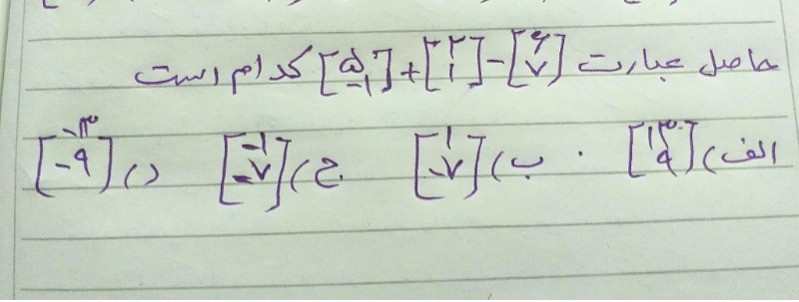 حاصل عبارت [۵ -۱]+[۲ ۱]-[۶ ۷] کدام است
الف) [۱۳ ۹] ب) [۱ -۷] ج) [-۱ -۷] د) [-۱۳ -۹]